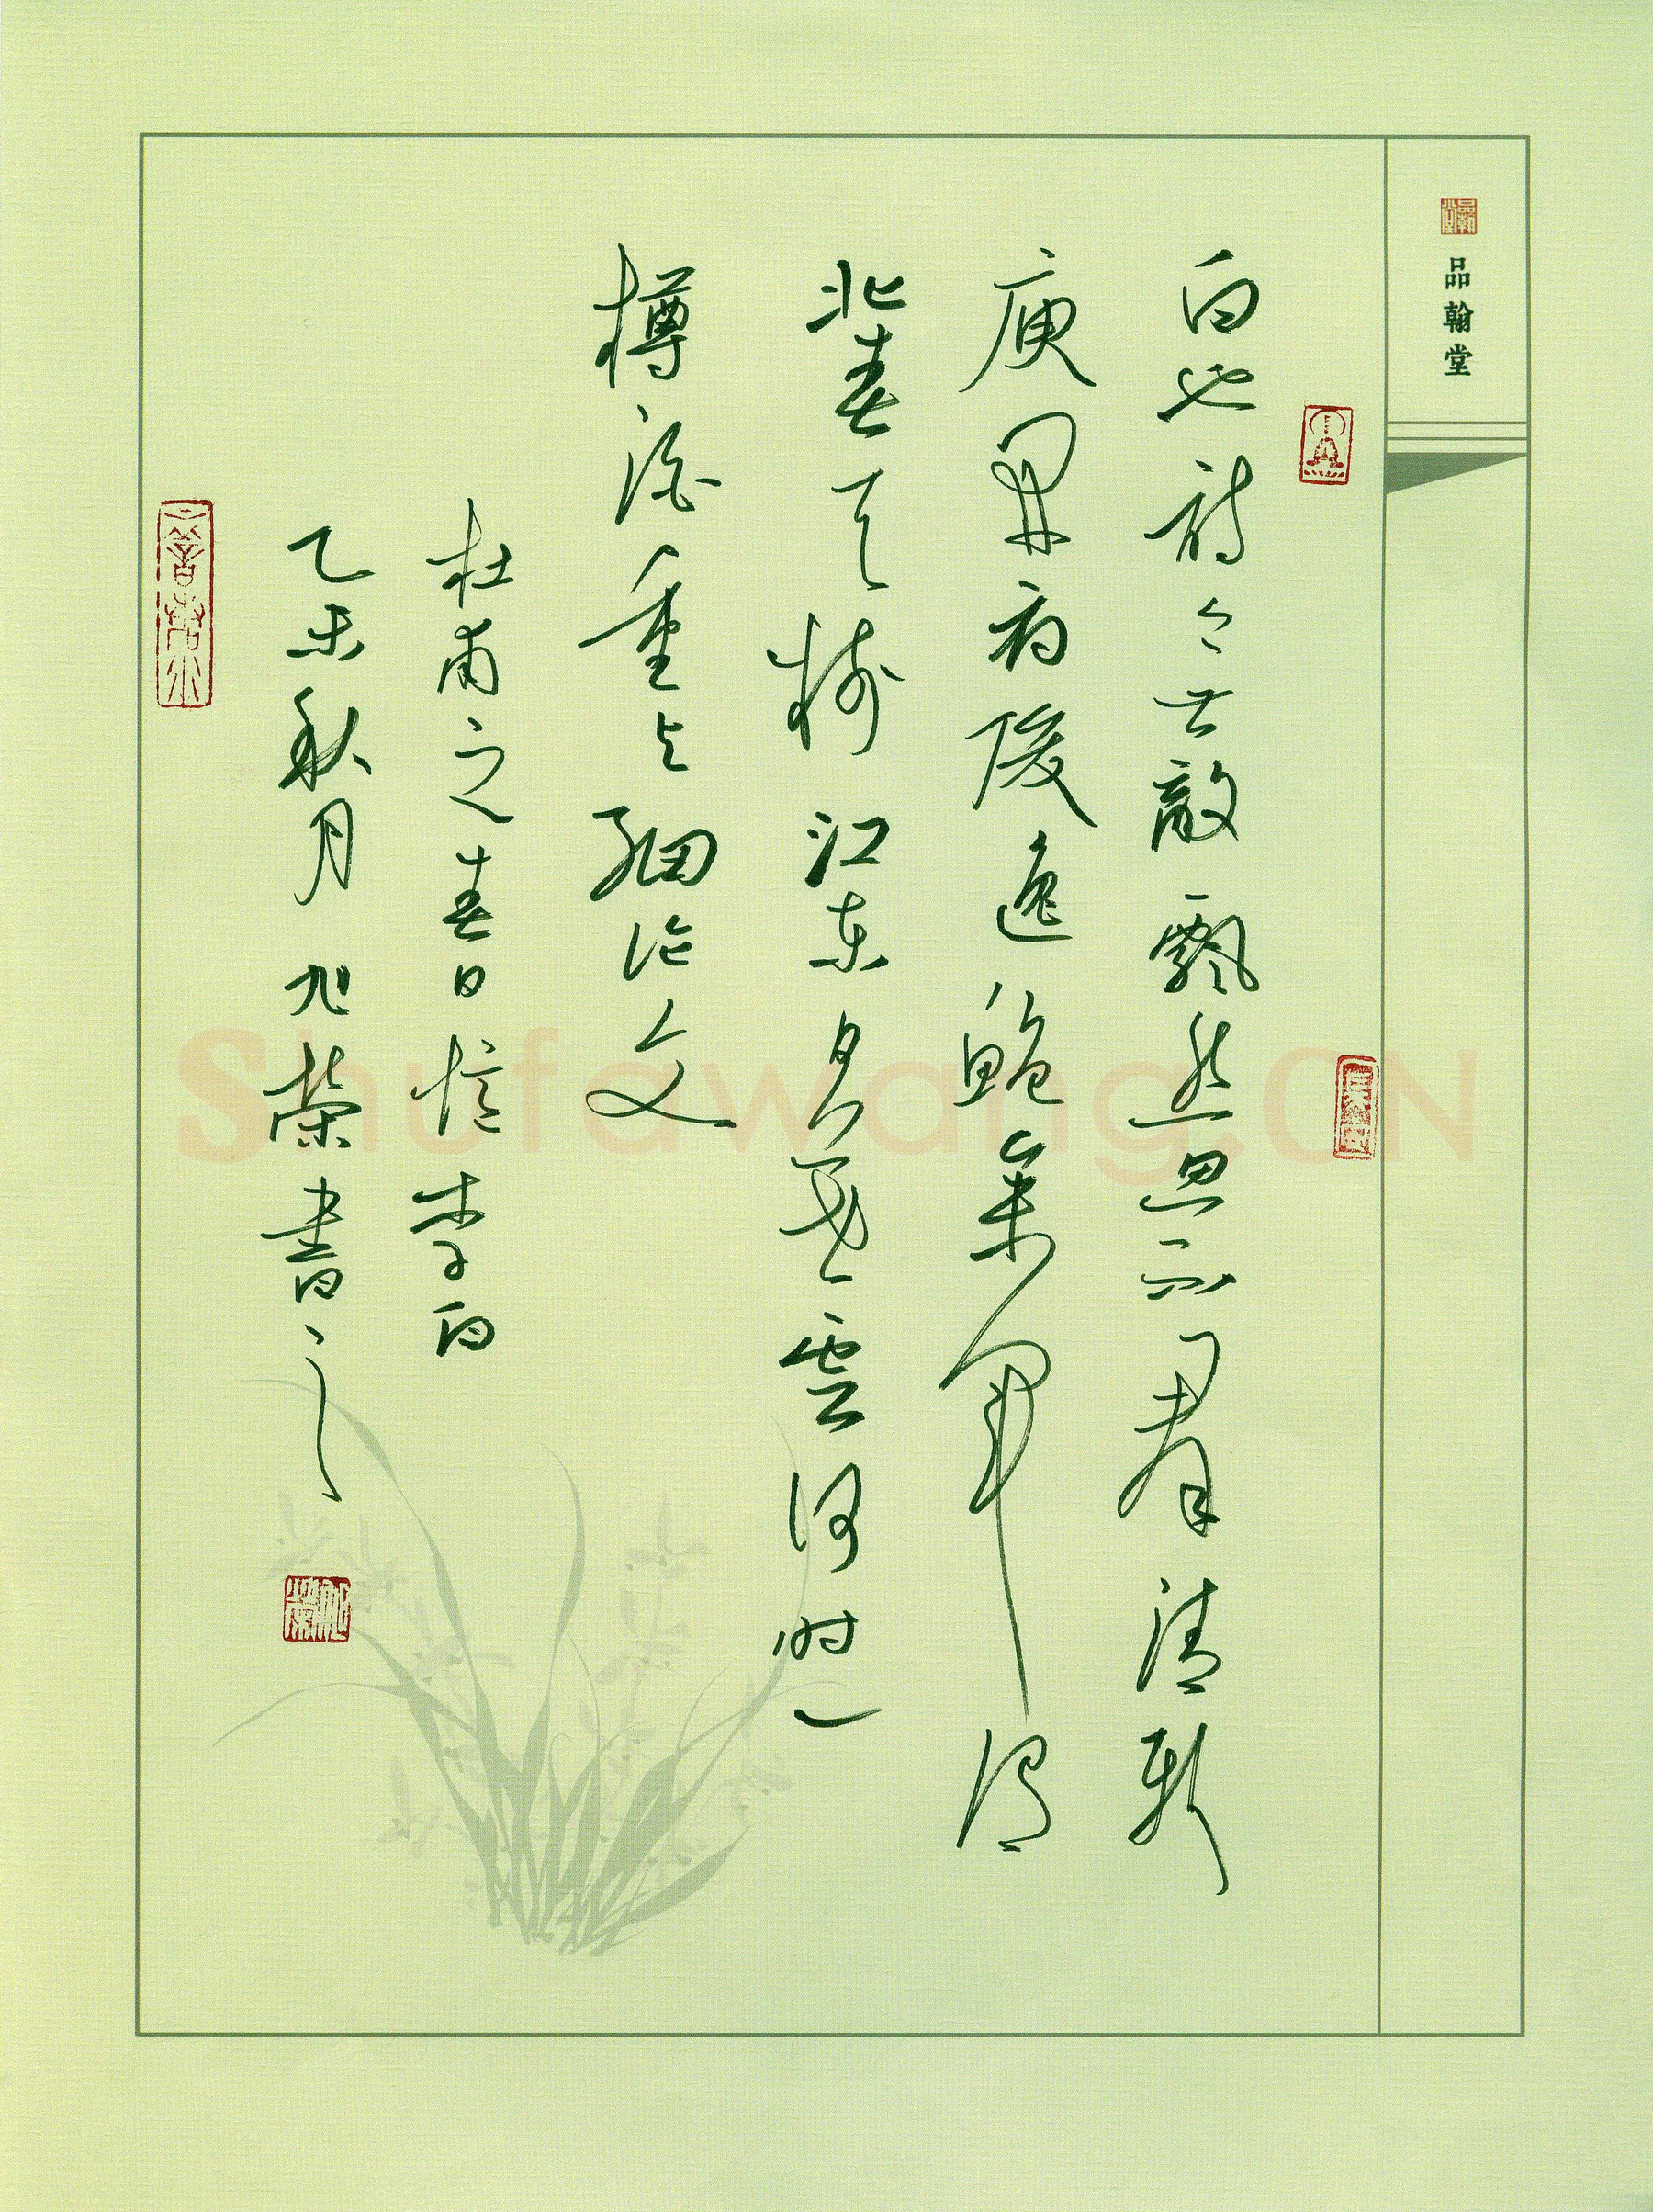 品翰堂
白也诗無敵飘然思不羣清新
庾開府俊逸鲍参军渭
北春天树江东日暮雲何时一
樽酒重与细论文
杜甫之春日憶李白
乙未秋月旭荣書之
Shufawang.CN